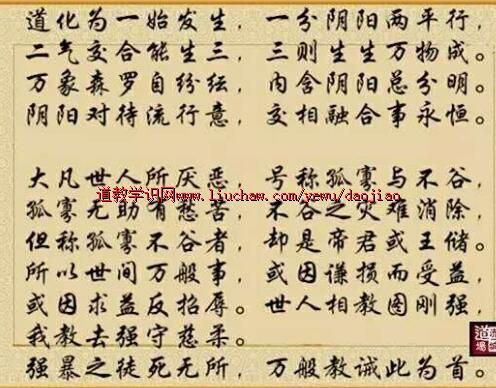 道化为一始发生，一分阴阳两平行，
二气交合能生三，三则生生万物成。
万象森罗自纷纭，内含阴阳总分明。
阴阳对待流行意，交相融合事永恒。
大凡世人所厌恶，号称孤寡与不谷，
道教学识网www.liuchaw.com/yewu/daojiao
孤寡无助有愁苦，不谷之灾难消除，
但称孤寡不谷者，却是帝君或王储。
所以世间万般事，或因谦损而受益，
或因求益反招辱。世人相教图刚强
我教去强守慈柔。
强暴之徒死无所，万般教诫此为首。
道